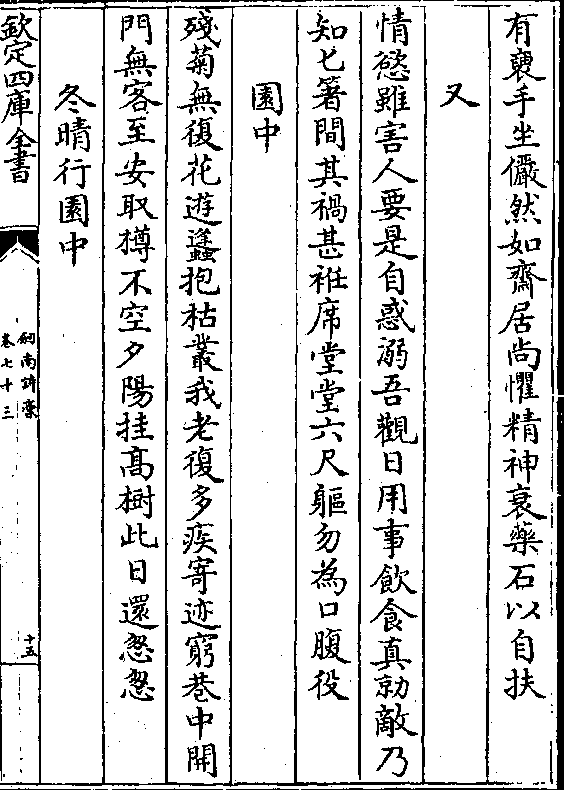 有褻手坐儼然如齋居尚懼精神衰藥石以自扶
又
情慾雖害人要是自惑溺吾觀日用事飲食真勍敵乃
知匕箸間其禍甚袵席堂堂六尺軀勿為口腹役
園中
殘菊無復花遊蠭抱枯叢我老復多疾寄迹窮巷中開
門無客至安取樽不空夕陽挂髙樹此日還怱怱
冬晴行園中
欽定四庫全書
劒南詩稾
卷七十三
十五